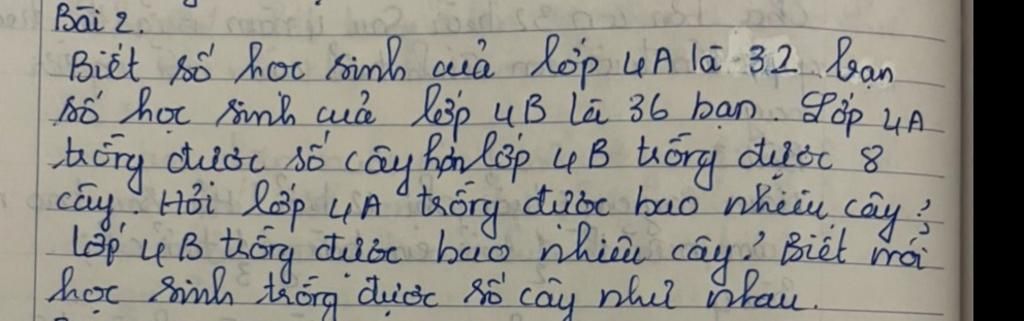 Bài 2.
Biết số học sinh của lớp 4A là 32 bạn
số học sinh của lớp 4B là 36 bạn. Lớp 4A
trồng được số cây hơn lớp 4B trồng được 8
cây. Hỏi lớp 4A trồng được bao nhiêu cây?
lớp 4B trồng được bao nhiêu cây? Biết mỗi
học sinh trồng được số cây như nhau.